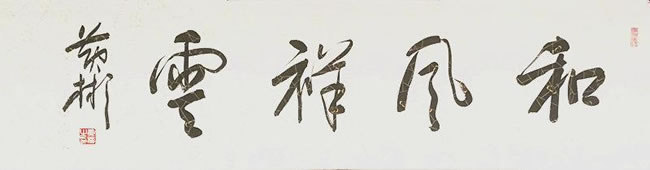 和風祥雲
彬